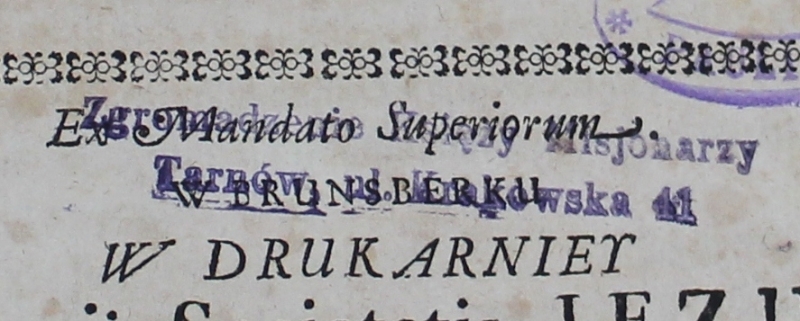 Ex Mandato Superiorum.
Zgromadzenie Księży Misjonarzy
W BRUNSBERKU
Tarnów, ul. Krakowska 41
W DRUKARNIEY
Societatis JEZU